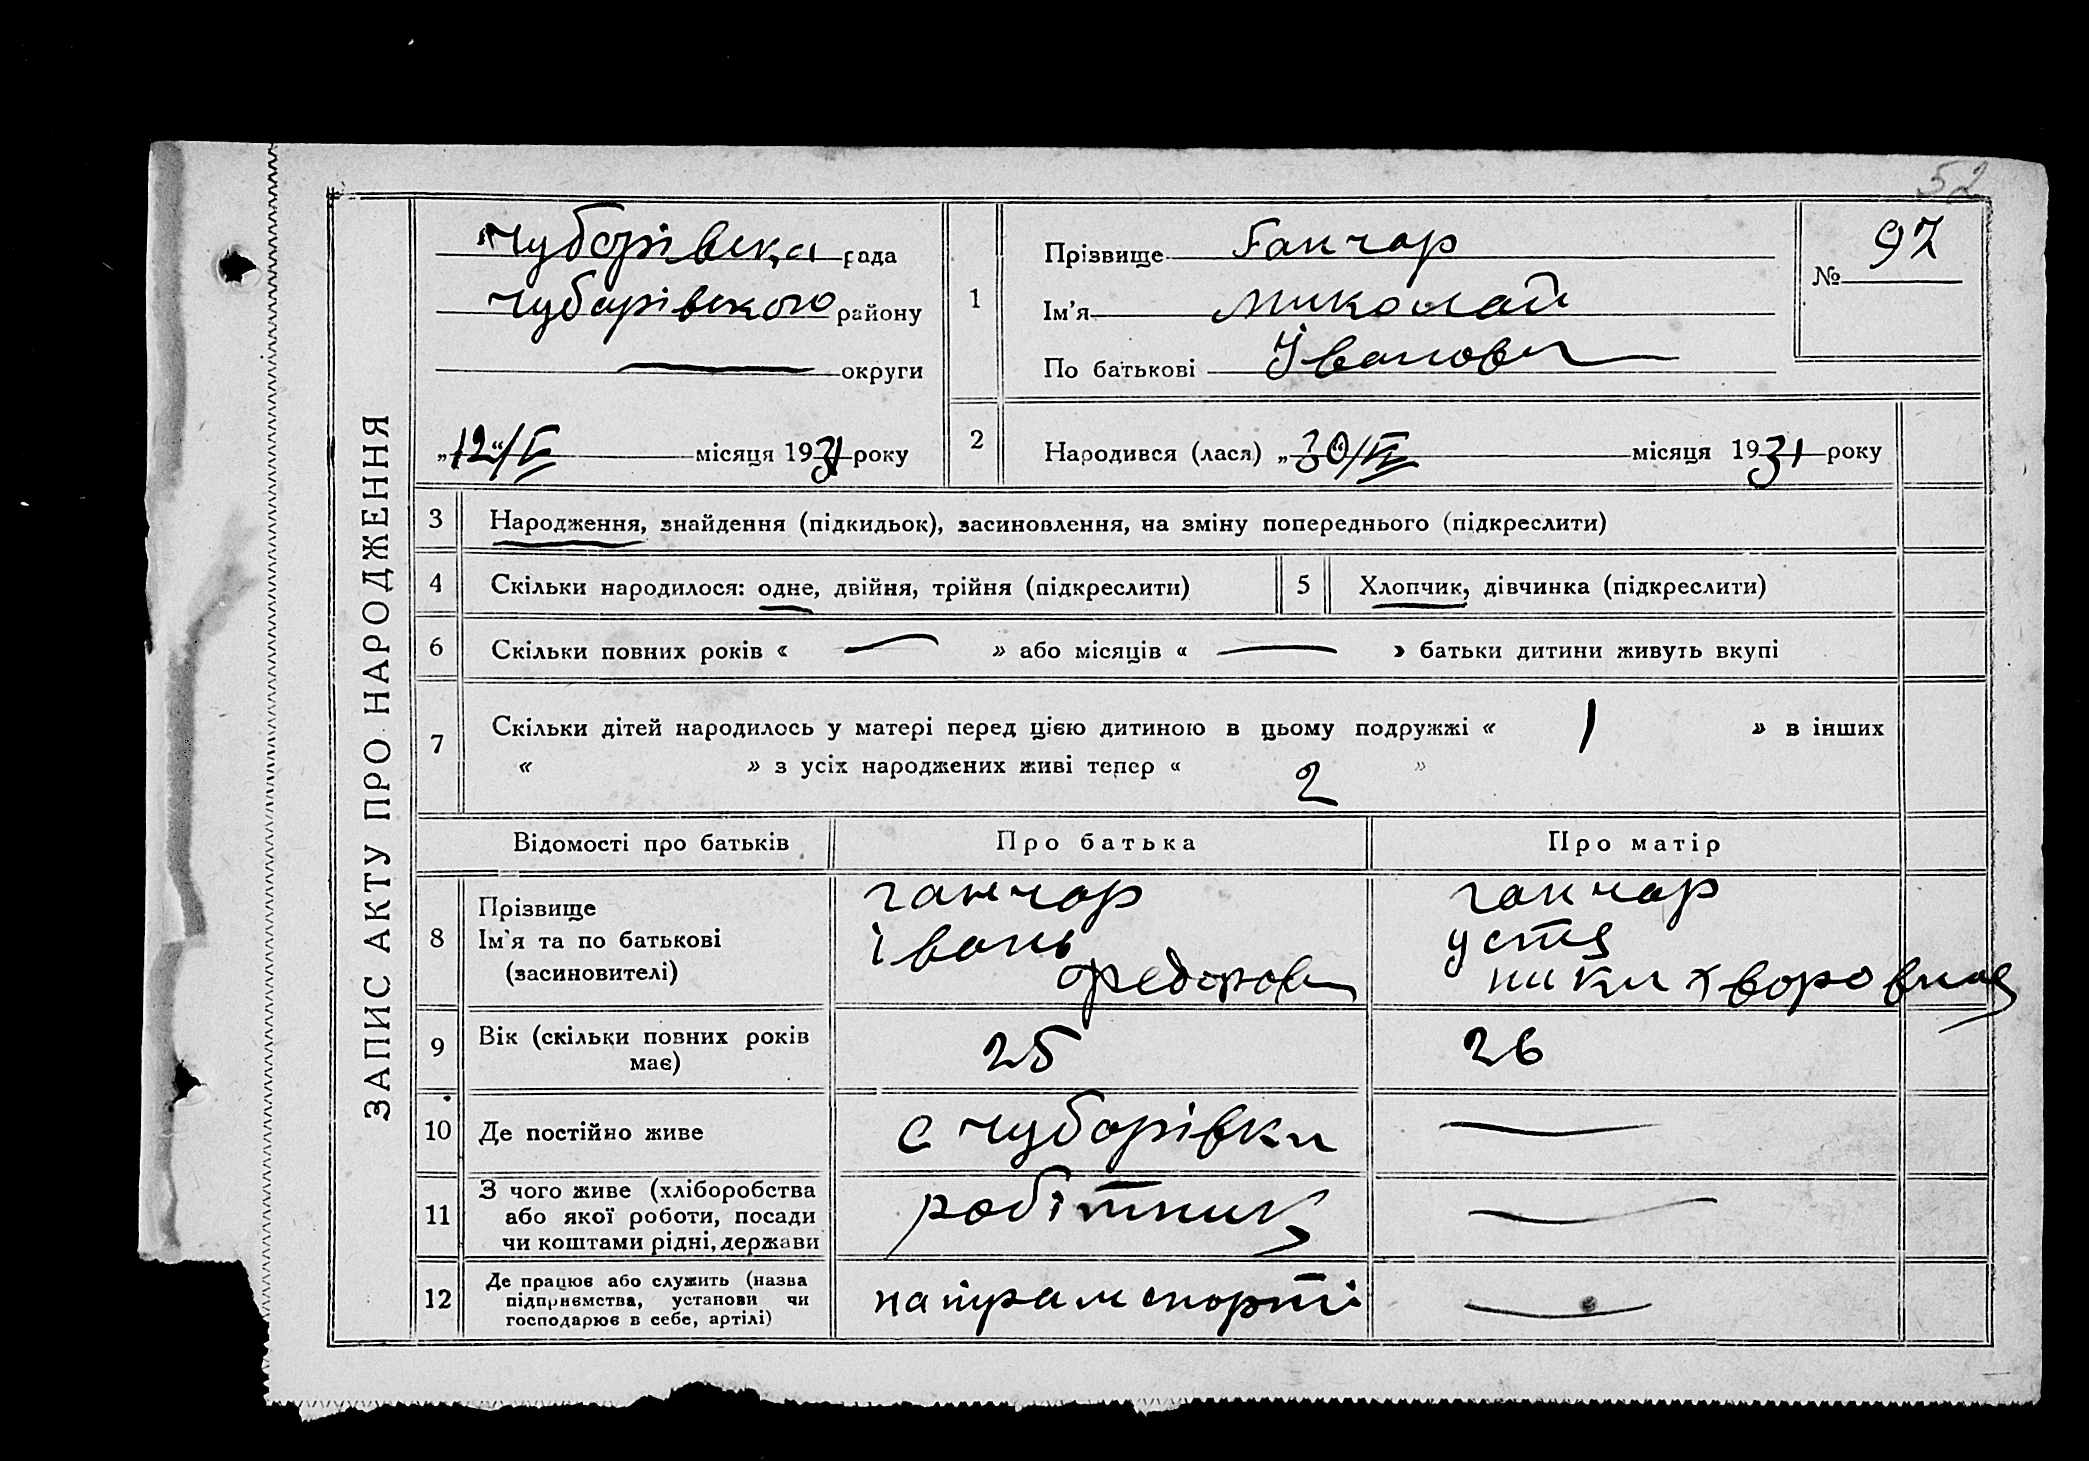 52
ЗАПИС АКТУ ПРО НАРОДЖЕННЯ
Чубарівська рада
Чубарівського району
— округи
„12“/V місяця 1931 року
1
Прізвище Ганчар
Ім'я Миколай
По батькові Іванови
№ 97
2
Народився (лася) „30“/IV місяця 1931 року
3 Народження, знайдення (підкидьок), засиновлення, на зміну попереднього (підкреслити)
4 Скільки народилося: одне, двійня, трійня (підкреслити)
5 Хлопчик, дівчинка (підкреслити)
6 Скільки повних років « — » або місяців « — » батьки дитини живуть вкупі
7 Скільки дітей народилось у матері перед цією дитиною в цьому подружжі « 1 » в інших
« » з усіх народжених живі тепер « 2 »
Відомості про батьків Про батька Про матір
8 Прізвище
Ім'я та по батькові
(засиновителі)
ганчар
івань
федоров
ганчар
устя
9 Вік (скільки повних років
має)
25
26
10 Де постійно живе
с чубарівки
—
11 З чого живе (хліборобства
або якої роботи, посади
чи коштами рідні, держави
робітник
—
12 Де працює або служить (назва
підприємства, установи чи
господарює в себе, артілі)
—